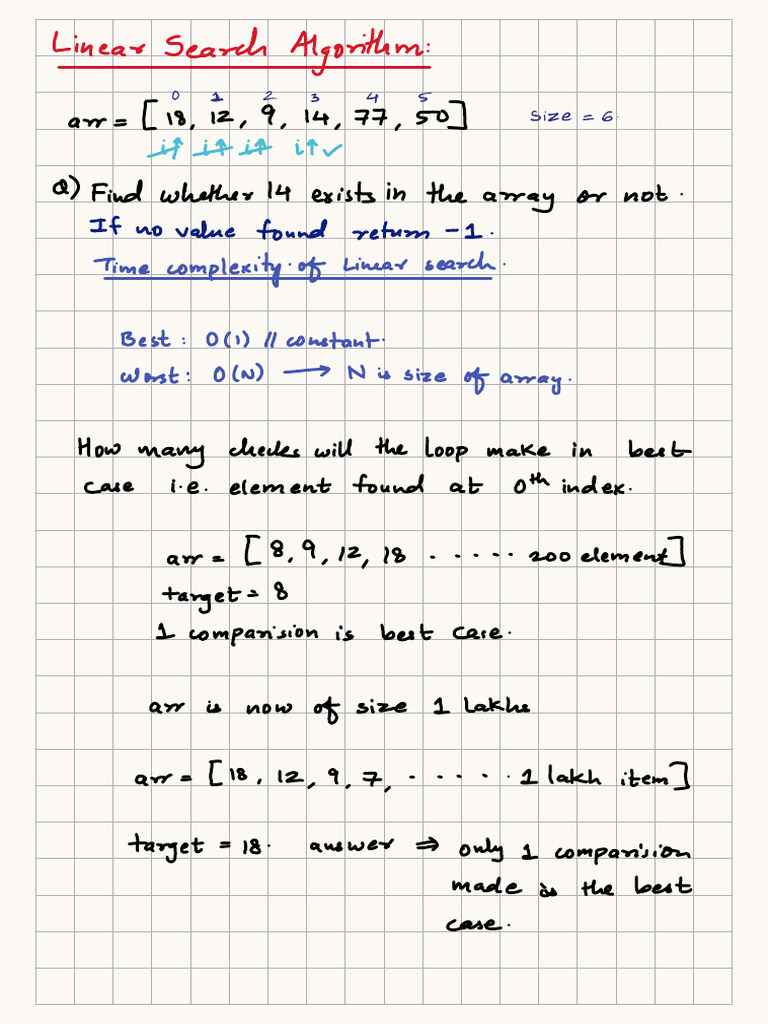 Linear Search Algorithm:
0 1 2 3 4 5
arr = [18, 12, 9, 14, 77, 50] Size = 6.
i↑ i↑ i↑ i↑ ✓
Q) Find whether 14 exists in the array or not.
If no value found return -1.
Time complexity of Linear search.
Best: O(1) // constant.
Worst: O(N) → N is size of array.
How many checks will the loop make in best
case i.e. element found at 0th index.
arr = [8, 9, 12, 18 ..... 200 element]
target = 8
1 comparision is best case.
arr is now of size 1 lakhs
arr = [18, 12, 9, 7, ...... 1 lakh item]
target = 18. answer ⇒ only 1 comparision
made is the best
case.